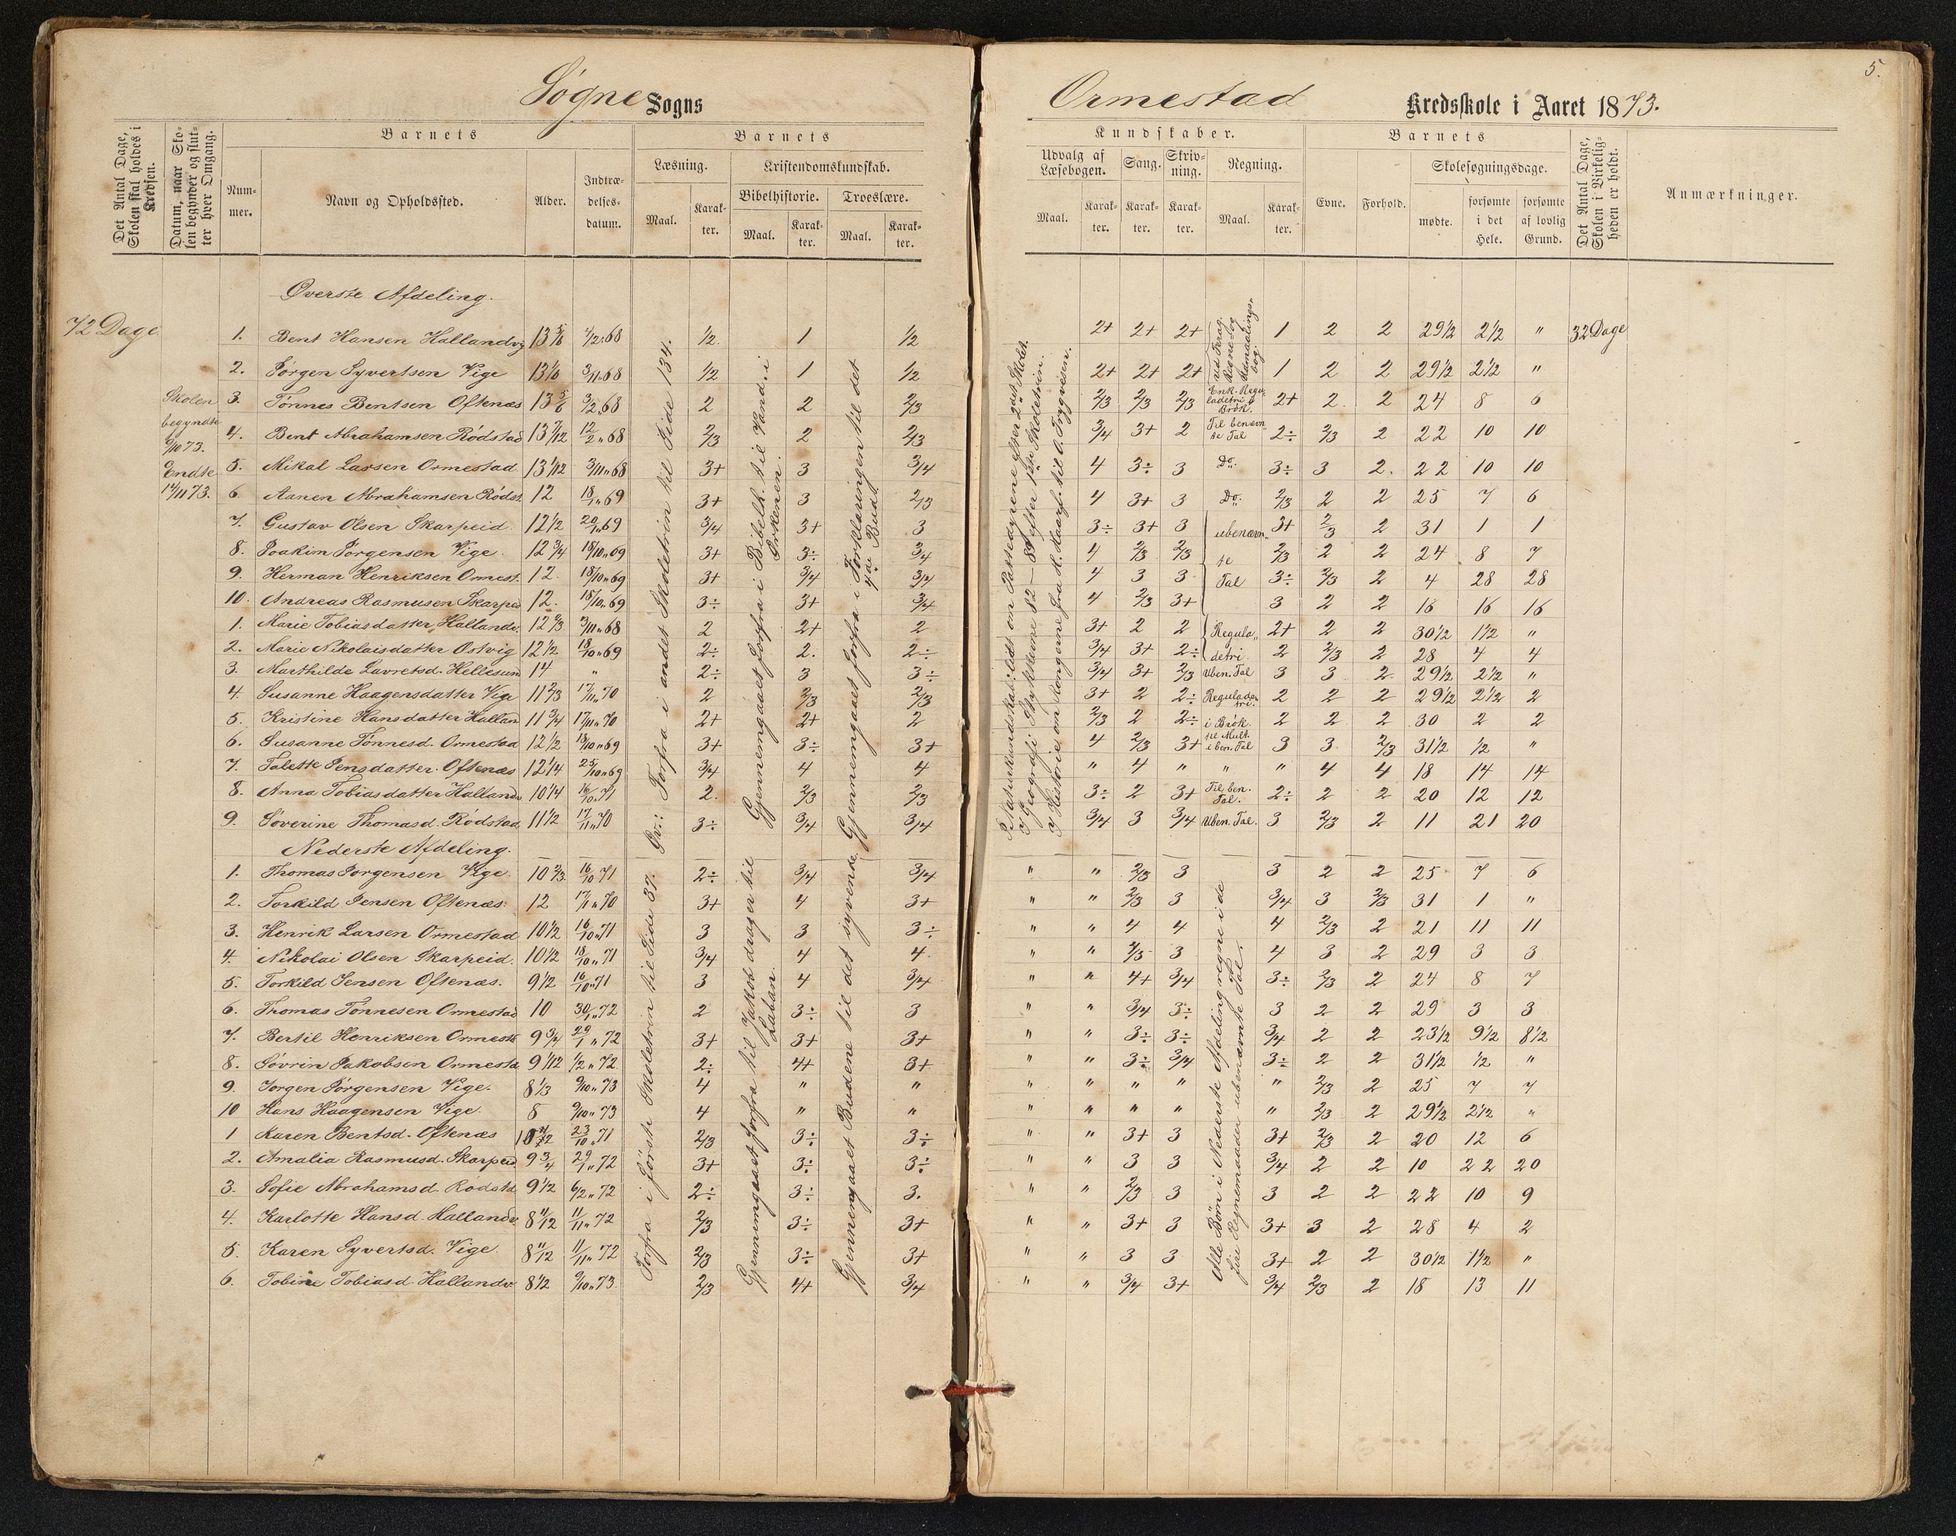 5.
Søgne Sogns
Ormestad Kredsskole i Aaret 1873.
Det Antal Dage, Skolen skal holdes i Kredsen.
Datum, naar Skolen begynder og slutter hver Omgang.
Barnets
Barnets
Kundskaber.
Barnets
Nummer.
Navn og Opholdssted.
Alder.
Indtrædelsesdatum.
Læsning.
Maal.
Karakter.
Kristendomskundskab.
Bibelhistorie.
Maal.
Karakter.
Troeslære.
Maal.
Karakter.
Udvalg af Læsebogen.
Maal.
Karakter.
Sang.
Karakter.
Skrivning.
Karakter.
Regning.
Maal.
Karakter.
Evne.
Forhold.
Skolesøgningsdage.
mødte.
forsømte i det Hele.
forsømte af lovlig Grund.
Det Antal Dage, Skolen i Virkeligheden er holdt.
Anmærkninger.
Øverste Afdeling.
72 Dage
Skolen
begyndte
9/10 73.
Endte
14/11 73.
1. Bent Hansen Hallandvig 13 5/6 4/2 68 1/2 1 1/2 2+ 2+ 2+ 1 2 2 29 1/2 2 1/2 " 32 Dage
2. Jørgen Syvertsen Vige 13 1/6 3/11 68 1/2 1 1/2 2+ 2+ 2+ 1 2 2 29 1/2 2 1/2 "
3. Tønnes Bentsen Oftenæs 13 5/6 3/2 68 2 2 2/3 2/3 2/3 2/3 2+ 2 2 24 8 6
4. Bent Abrahamsen Rödstad 13 7/12 12/2 68 2/3 2 2/3 3/4 3+ 2 2÷ 2/3 2 22 10 10
5. Mikal Larsen Ormestad 13 1/12 3/11 68 3+ 3 3/4 4 3÷ 3 Do. 3÷ 3 2 22 10 10
6. Aanen Abrahamsen Rödst. 12 18/1 69 3+ 3 2/3 4 3+ 3 Do. 2/3 2 2 25 7 6
7. Gustav Olsen Skarpeid 12 1/2 20/1 69 3/4 3+ 3 3÷ 3+ 3 3+ 2/3 2 31 1 1
8. Joakim Jørgensen Vige 12 3/4 18/10 69 3+ 3÷ 3/4 4 2/3 2/3 2/3 2 2 24 8 7
9. Herman Henriksen Ormest. 12 18/10 69 3+ 3/4 3/4 4 3 3 3÷ 2/3 2 4 28 28
10. Andreas Rasmusen Skarpeid 12. 18/10 69 3÷ 3+ 3/4 4 2/3 3+ 3 2 2 16 16 16
1. Marie Tobiasdatter Hallandv. 12 2/3 3/11 68 2 2+ 2 3+ 2 2 2+ 2 2 30 1/2 1 1/2 "
2. Marie Nikolaisdatter Østvig 12 1/2 18/10 69 2÷ 2. 2÷ 3/4 3+ 2÷ 2 2/3 2 28 4 4
3. Marthilde Lavretsd. Hellesund 14 " 2÷ 3 3÷ 3/4 3+ 2/3 Uben. Tal 3 3 2 29 1/2 2 1/2 "
4. Susanne Haagensdatter Vige 11 2/3 17/11 70 2 2/3 2/3 3+ 2 2÷ 2 2 2 29 1/2 2 1/2 2
5. Kristine Hansdatter Halland 11 3/4 17/11 70 2+ 2+ 2 2/3 2 2÷ i Brök 2 2 2 30 2 2
6. Susanne Tönnesd. Ormestad 12 1/2 18/10 69 3+ 3÷ 3+ 4 2/3 3+ til Mult. i ben. Tal 3 3 2/3 31 1/2 1/2 "
7. Talette Jensdatter Oftenæs 12 1/4 25/10 69 3/4 4 4 " 4 " " " 4 4 18 14 14
8. Anna Tobiasdatter Hallandv 10 1/4 16/10 71 2. 2/3 2/3 3÷ 2 3+ Til ben. Tal. 2÷ 2 2 20 12 12
9. Søverine Thomasd. Rodstad 11 1/2 17/11 70 3÷ 3/4 3/4 3/4 3 3/4 Uben. Tal. 3 2/3 2 11 21 20
Nederste Afdeling.
1. Thomas Jørgensen Vige 10 2/3 16/10 71 2÷ 3/4 3/4 " " 2/3 3 3 2 2 25 7 6
2. Torkild Jensen Oftenæs 12 17/11 70 3+ 4 3+ " " 2/3 3 3/4 3 2/3 31 1 "
3. Henrik Larsen Ormestad 10 1/2 16/10 71 3 3 3÷ " " 4 4 4 2/3 2 21 11 11
4. Nikolai Olsen Skarpeid. 10 1/2 18/10 71 3/4 4 4. " " 3 4 3 2 29 3 3
5. Torkild Jensen Oftenæs. 9 1/2 16/10 71 3 4 3/4 " " 4+ 3/4 3÷ 2/3 2 24 8 7
6. Thomas Tönnesen Ormestad 10 30/1 72 2 3÷ 3 " " 3/4 3÷ 3 2 2 29 3 3
7. Bertil Henriksen Ormest. 9 3/4 29/1 72 3+ 3+ 3+ " " 3÷ 3÷ 3/4 2 2 23 1/2 9 1/2 8 1/2
8. Søvrin Jakobsen Ormesta 9 1/12 1/2 72 2÷ 4+ 3+ " " 3÷ 3/4 3÷ 2 2 31 1/2 1/2 "
9. Jorgen Jørgensen Vige. 8 1/3 9/10 73 4 " " " " " " " 2/3 2 25 7 7
10 Hans Haagensen Vige 8 9/10 73 4 " " " " " " " 2/3 2 29 1/2 2 1/2 "
1 Karen Bentsd. Oftenæs 23/10 71 2/3 3÷ 3÷ " " 3+ 3 3+ 2/3 2 20 12 6
2. Amalia Rasmusd. Skarpeid 9 3/4 29/1 72 3+ 3÷ 3÷ " " 3 3 3/4 2 2 10 22 20
3. Sofie Abrahamsd Rödstd 9 1/2 6/2 72 2÷ 3÷ 3. " " 2/3 3 3 2 2 22 10 9
4. Karlotte Hansd. Hallandv. 8 11/12 11/11 72 2/3 3÷ 3+ " " 3+ 3 3+ 3 2 28 4 2
5. Karen Syvertsd. Vige 8 11/12 11/11 72 2/3 3÷ 3+ " " 3 3 3+ 2 2 30 1/2 1 1/2 "
6. Tobine Tobiasd Hallandv 8 1/2 9/10 73 2/3 4+ 3/4 " " 3/4 3+ 3/4 2/3 2 18 13 11
Forfra i andet Skoletrin til Side 134.
Gjennemgaaet forfra i Bibelh. til Vand. i Ørkenen.
Gjennemgaaet forfra i Forklaringen til det 4de Bud.
Forfra i første Skoletrin til Side 37.
Gjennemgaaet forfra til Jakob drager til Laban.
Gjennemgaaet Budene til det syvende.
ubenævnte Tal
Alle Børn i Nederste Afdeling regne i de fire Regnemaader ubenævnte Tal.